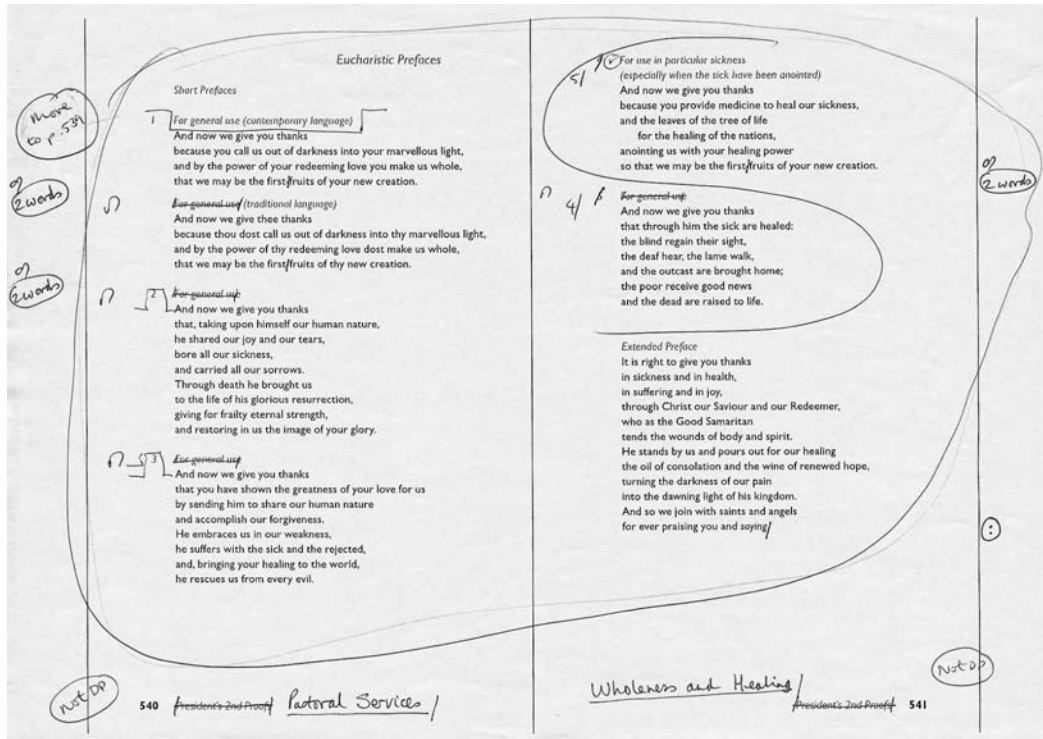 Eucharistic Prefaces
Short Prefaces
move
to p. 539
1 For general use (contemporary language)
And now we give you thanks
because you call us out of darkness into your marvellous light,
and by the power of your redeeming love you make us whole,
that we may be the first/fruits of your new creation.
2 words
For general use (traditional language)
And now we give thee thanks
because thou dost call us out of darkness into thy marvellous light,
and by the power of thy redeeming love dost make us whole,
that we may be the first/fruits of thy new creation.
2 words
2 For general use
And now we give you thanks
that, taking upon himself our human nature,
he shared our joy and our tears,
bore all our sickness,
and carried all our sorrows.
Through death he brought us
to the life of his glorious resurrection,
giving for frailty eternal strength,
and restoring in us the image of your glory.
3 For general use
And now we give you thanks
that you have shown the greatness of your love for us
by sending him to share our human nature
and accomplish our forgiveness.
He embraces us in our weakness,
he suffers with the sick and the rejected,
and, bringing your healing to the world,
he rescues us from every evil.
Not DP
540 President's 2nd Proofs Pastoral Services/
5/ For use in particular sickness
(especially when the sick have been anointed)
And now we give you thanks
because you provide medicine to heal our sickness,
and the leaves of the tree of life
for the healing of the nations,
anointing us with your healing power
so that we may be the first/fruits of your new creation.
2 words
4/ For general use
And now we give you thanks
that through him the sick are healed:
the blind regain their sight,
the deaf hear, the lame walk,
and the outcast are brought home;
the poor receive good news
and the dead are raised to life.
Extended Preface
It is right to give you thanks
in sickness and in health,
in suffering and in joy,
through Christ our Saviour and our Redeemer,
who as the Good Samaritan
tends the wounds of body and spirit.
He stands by us and pours out for our healing
the oil of consolation and the wine of renewed hope,
turning the darkness of our pain
into the dawning light of his kingdom.
And so we join with saints and angels
for ever praising you and saying/
:
Not DP
Wholeness and Healing/
President's 2nd Proofs 541